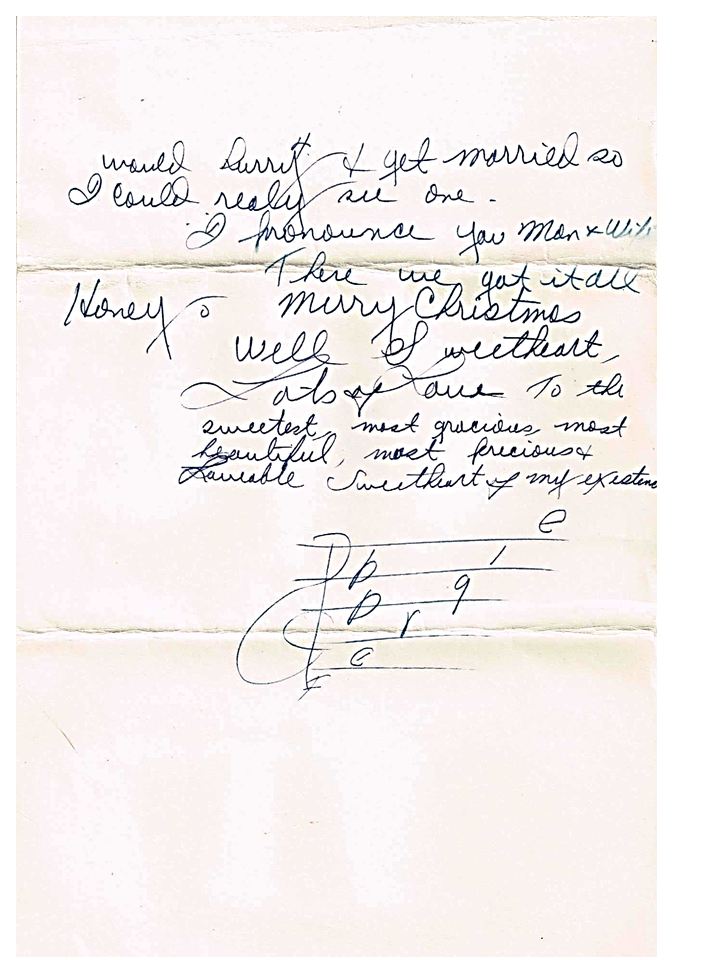 would hurry & get married so
I could realy see one.
I pronounce you Man & Wife
There we got it all
Honey Merry Christmas
Well Sweetheart,
Lots of Love To the
sweetest, most gracious, most
beautiful, most precious &
Loveable Sweetheart of my existence